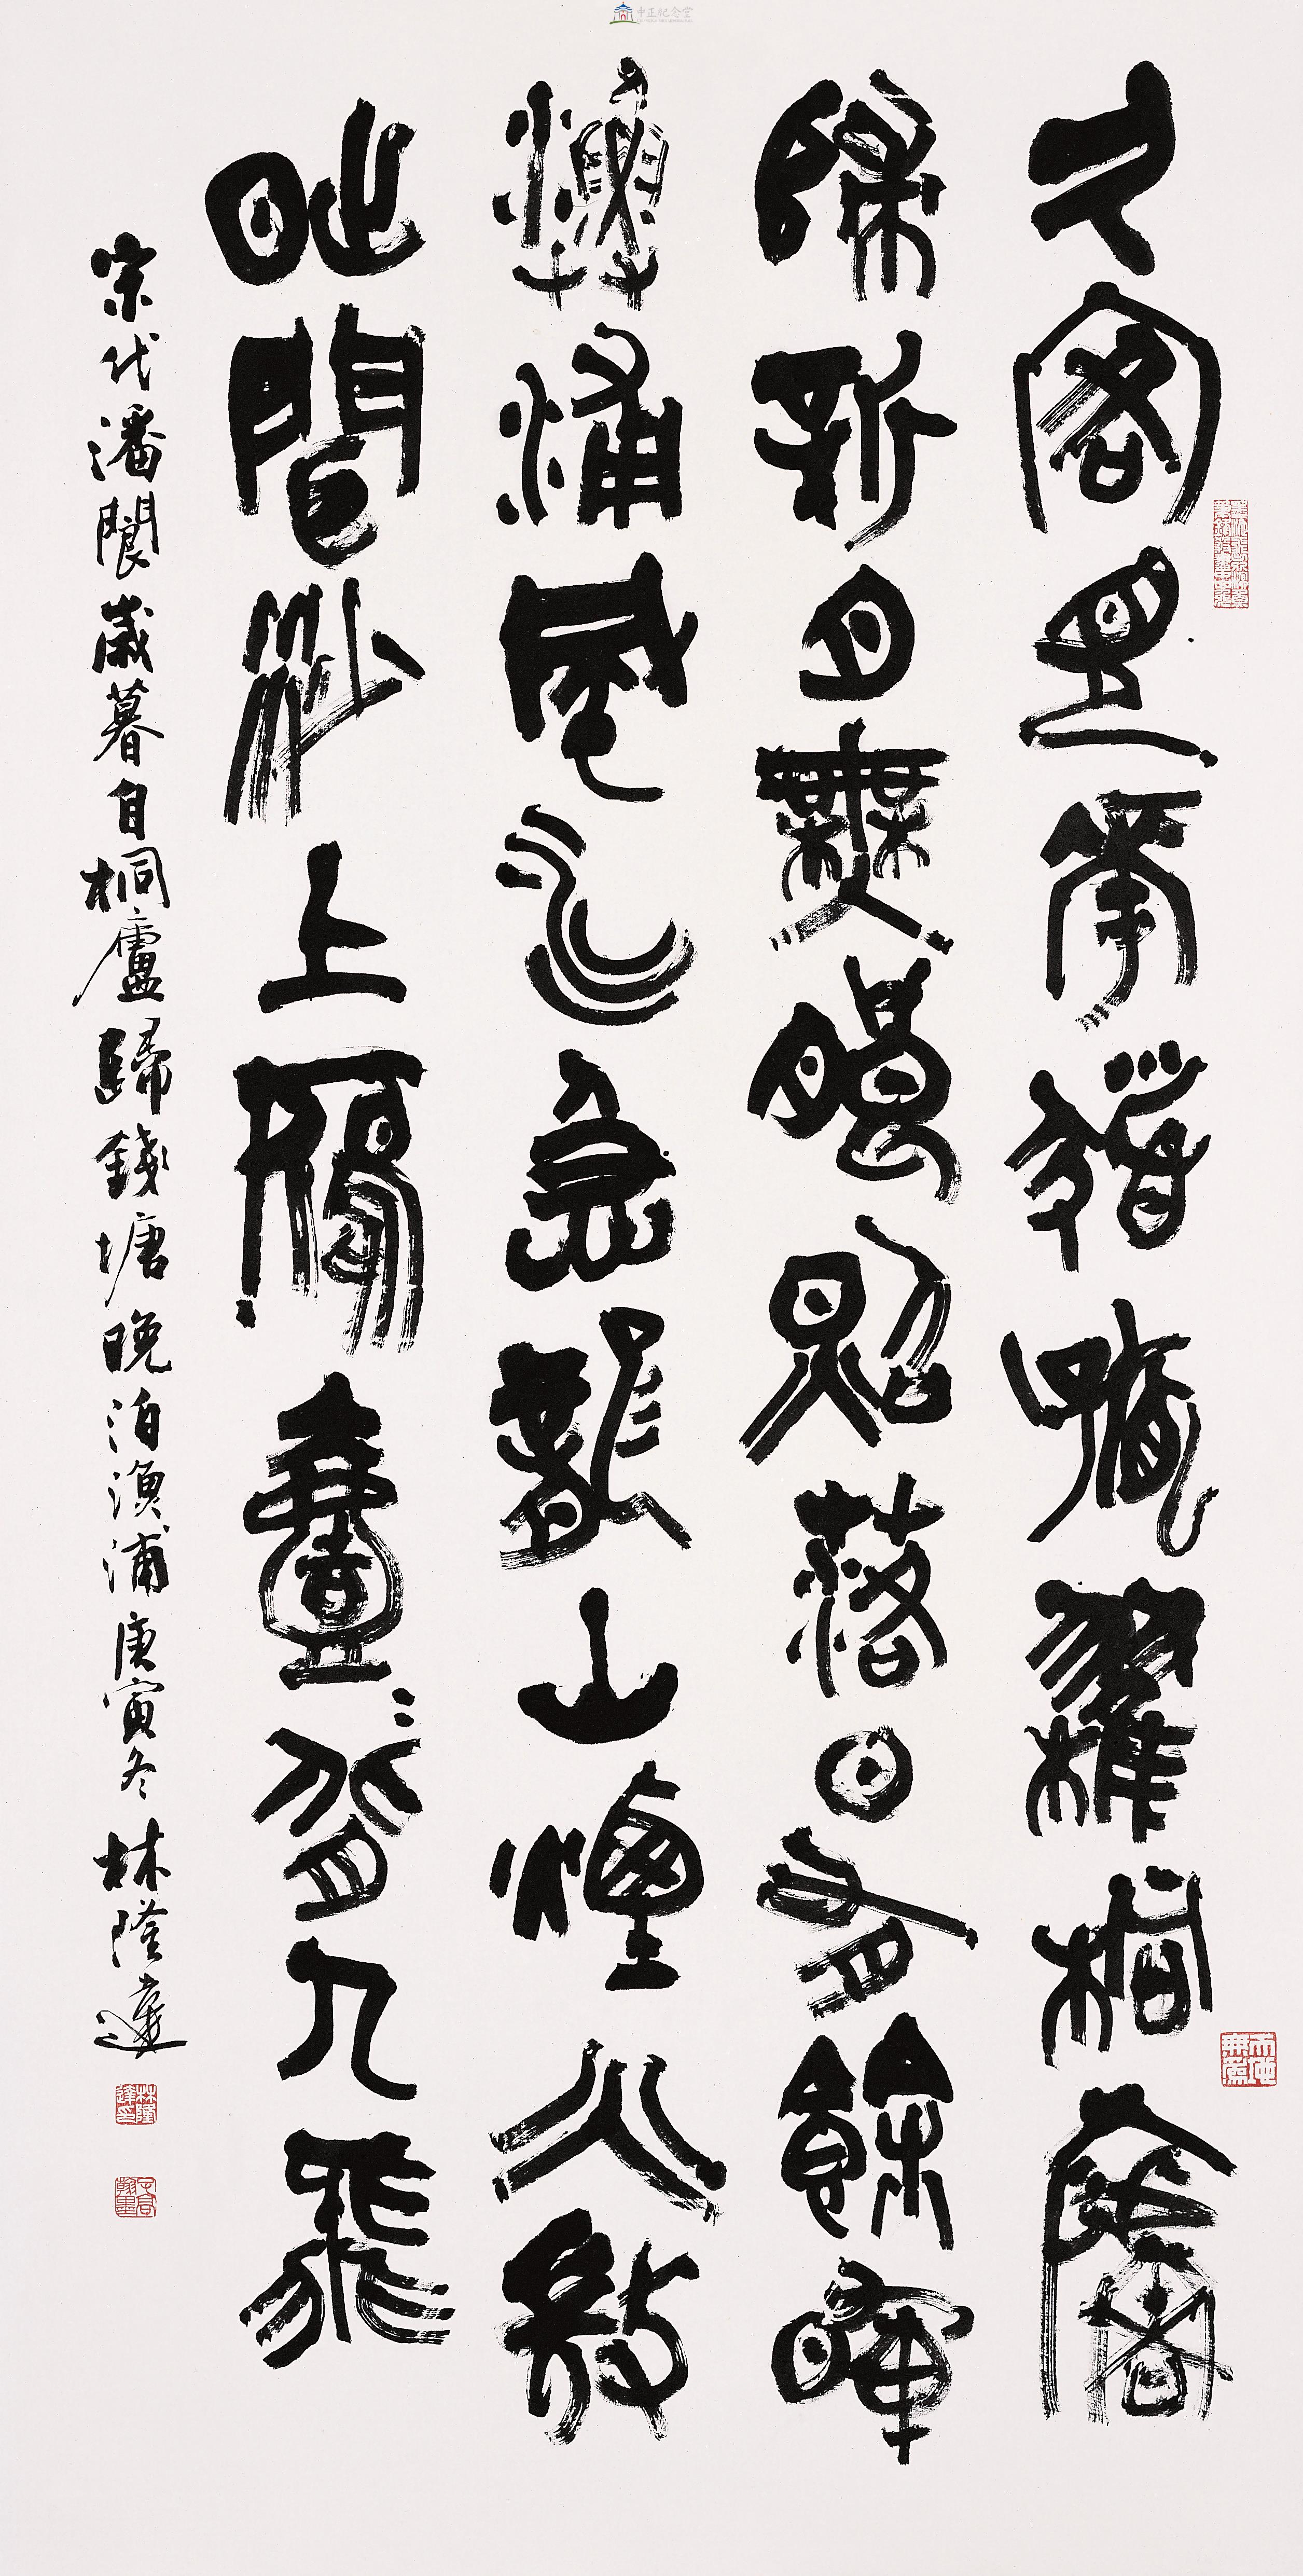 中正紀念堂
久客見華髮孤櫂桐廬
歸新月無朗照落日有餘暉
漁浦風水急龍山煙火微
時聞沙上雁壹〻背人飛
宋代潘閬歲暮自桐廬歸錢塘晚泊漁浦庚寅冬林隆達
林隆達印